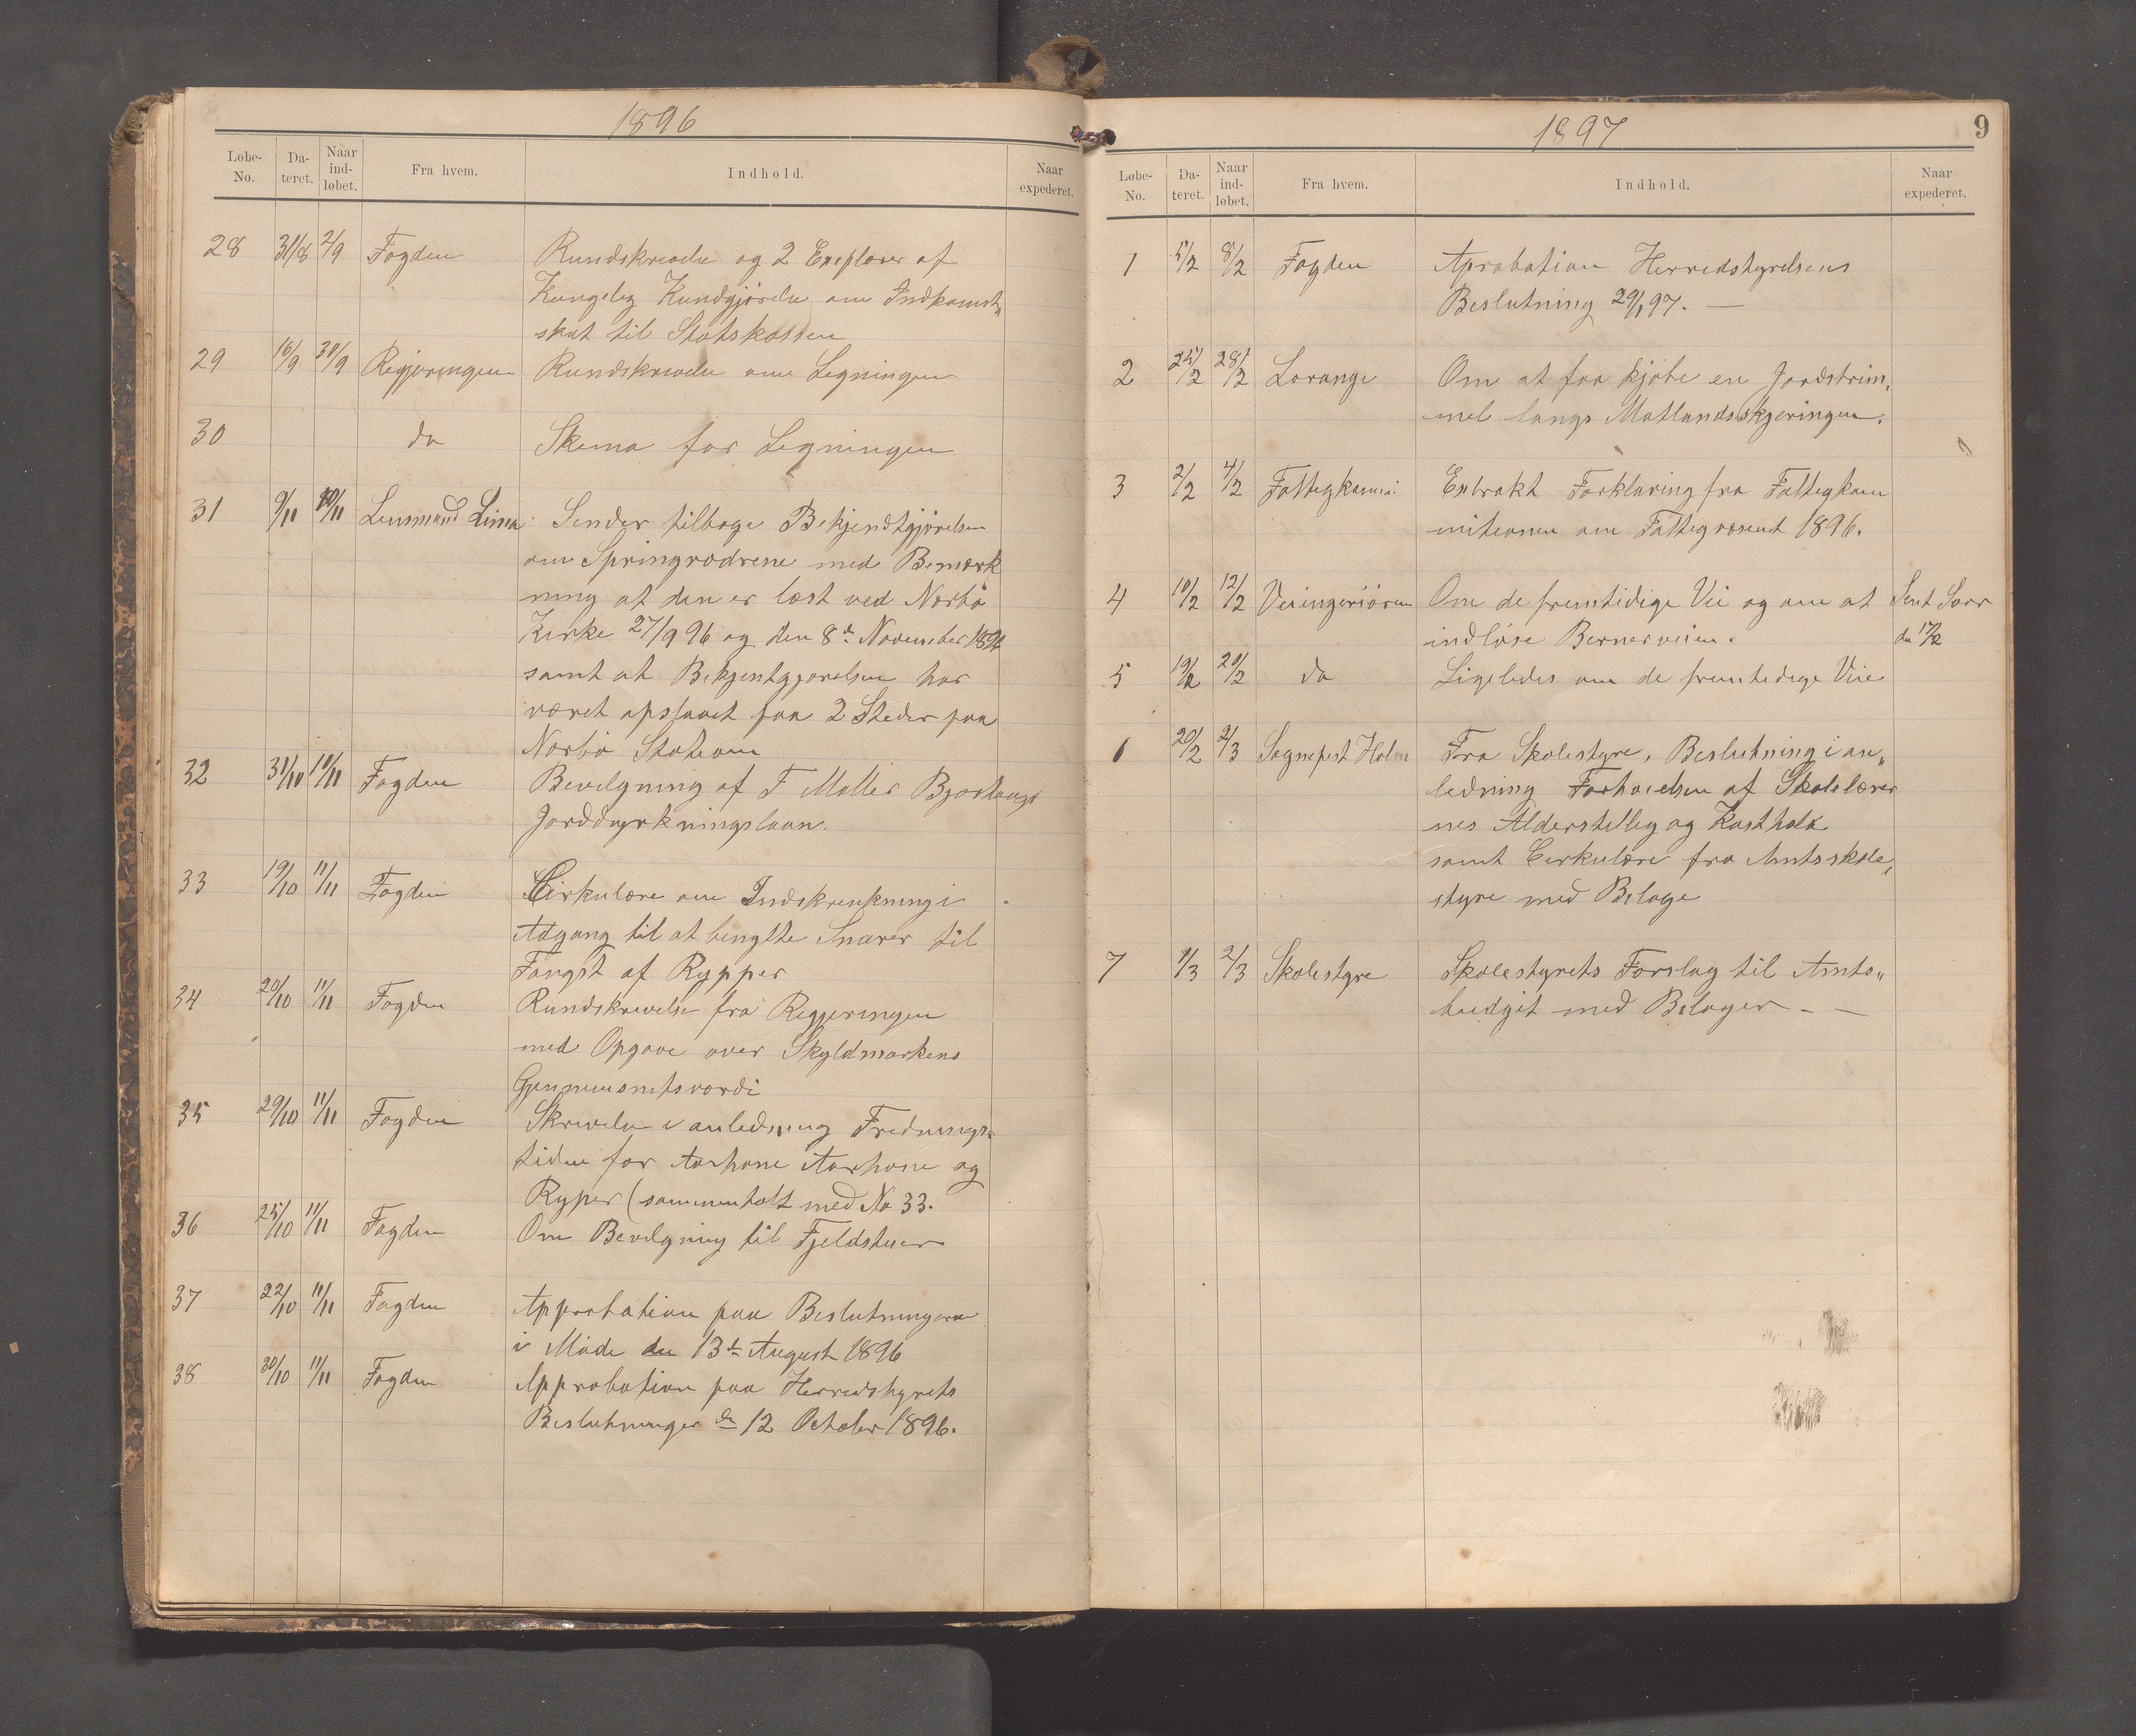 1896
Løbe-No. Da-teret. Naar ind-løbet. Fra hvem. Indhold. Naar expederet.
28 31/8 2/9 Fogden Rundskrivelse og 2 Exeplarer af
Kongelig Kundgjörelse om Indkomst„
skat til Statskassen
29 16/9 30/9 Regjeringen Rundskrivelse om Legningen
30 do Skema for Legningen
31 9/11 10/11 Lensmand Lima Sender tilbage Bekjendtgjörelsen
om Springrodrene med Bemærk
ning at den er læst ved Nærbö
Kirke 27/9 96 og den 8de November 1896
samt at Bekjentgjørelsen har
været opslaaet paa 2 Steder paa
Nærbö Station
32 31/10 10/11 Fogden Bevilgning af T Malles Bjorhaugs
Jorddyrkningslaan.
33 19/10 11/11 Fogden Cirkulære om Indskrenkning i
Adgang til at benytte Snarer til
Fangst af Rypper
34 20/10 11/11 Fogden Rundskrivelse fra Regjeringen
med Opgave over Skyldmarkens
Gjennemsnitsværdi
35 29/10 11/11 Fogden Skrivelse i anledning Frednings„
tiden for Aarhane Aarhone og
Ryper (sammenholt med No 33.
36 25/10 11/11 Fogden Om Bevilgning til Fjeldstuer
37 22/10 11/11 Fogden Approbation paa Beslutningerne
i Möde den 13de August 1896
38 30/10 11/11 Fogden Approbation paa Herredstyrets
Beslutninger d 12 October 1896.
1897
9
Løbe-No. Da-teret. Naar ind-løbet. Fra hvem. Indhold. Naar expederet.
1 5/2 8/2 Fogden Aprobation Herredstyrelsens
Beslutning 29/1 97. —
2 25/2 28/2 Lorange Om at faa kjöbe en Jordstrim„
mel langs Motlandsskjeringen.
3 2/2 4/2 Fattigkommi. Extrakt Forklaring fra Fattigkom
mitionen om Fattigvæsent 1896.
4 10/2 12/2 Veiingeniören Om de fremtidige Vei og om at Sent Svar
indlöse Bernerveien. du 17/2
5 19/2 20/2 do Ligeledes om de fremtidige Veie
6 20/2 2/3 Sognepest Holm Fra Skolestyre, Beslutning i an„
ledning Forhöielsen af Skolelærer
nes Alderstilleg og Kosthold
samt Cirkulære fra Amtsskole„
styre med Bilage
7 1/3 2/3 Skolestyre Skolestyrets Forslag til Amts„
budget med Bilager - —